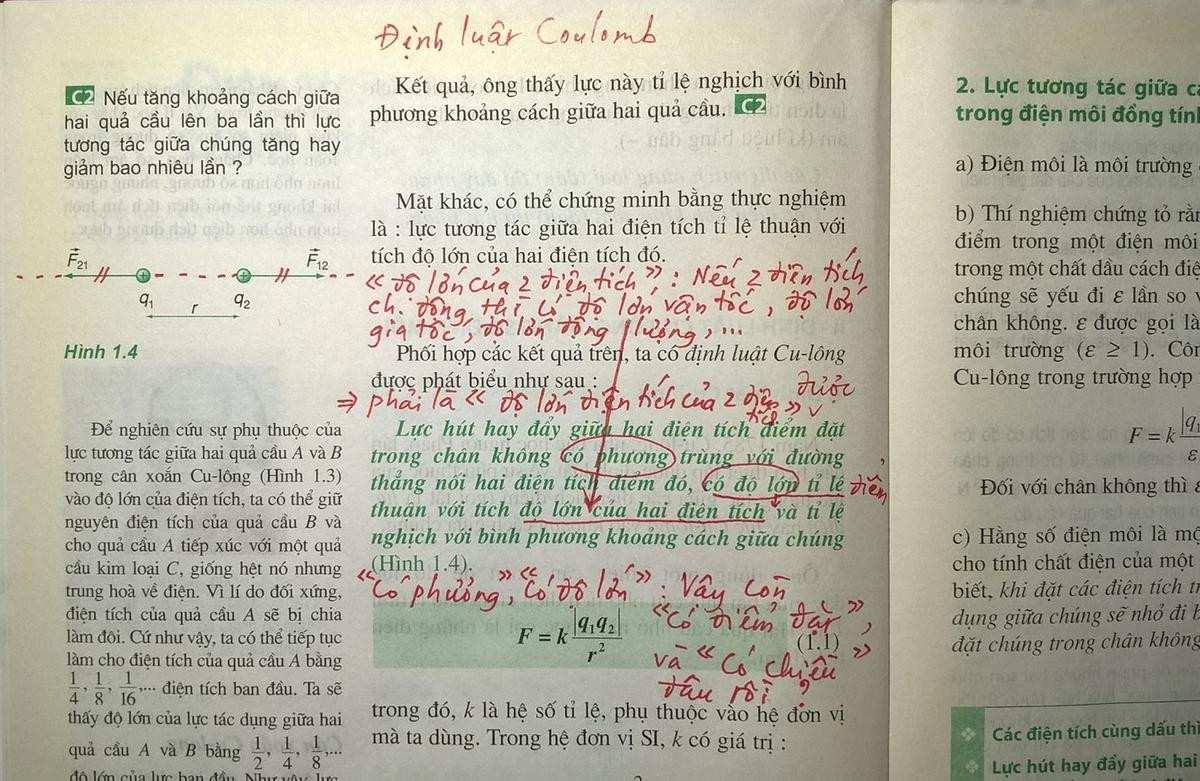 Định luật Coulomb
C2 Nếu tăng khoảng cách giữa
hai quả cầu lên ba lần thì lực
tương tác giữa chúng tăng hay
giảm bao nhiêu lần ?
F₂₁
F₁₂
q₁
r
q₂
Hình 1.4
Để nghiên cứu sự phụ thuộc của
lực tương tác giữa hai quả cầu A và B
trong cân xoắn Cu-lông (Hình 1.3)
vào độ lớn của điện tích, ta có thể giữ
nguyên điện tích của quả cầu B và
cho quả cầu A tiếp xúc với một quả
cầu kim loại C, giống hệt nó nhưng
trung hoà về điện. Vì lí do đối xứng,
điện tích của quả cầu A sẽ bị chia
làm đôi. Cứ như vậy, ta có thể tiếp tục
làm cho điện tích của quả cầu A bằng
1/4, 1/8, 1/16,... điện tích ban đầu. Ta sẽ
thấy độ lớn của lực tác dụng giữa hai
quả cầu A và B bằng 1/2, 1/4, 1/8,...
độ lớn của lực ban đầu. Như vậy, lực
Kết quả, ông thấy lực này tỉ lệ nghịch với bình
phương khoảng cách giữa hai quả cầu. C2
Mặt khác, có thể chứng minh bằng thực nghiệm
là : lực tương tác giữa hai điện tích tỉ lệ thuận với
tích độ lớn của hai điện tích đó.
« độ lớn của 2 điện tích » : Nếu 2 điện tích
ch. động thì có độ lớn vận tốc, độ lớn
gia tốc, độ lớn động lượng, ...
Phối hợp các kết quả trên, ta có định luật Cu-lông
được phát biểu như sau :
⇒ phải là « độ lớn điện tích của 2 điện tích » được
Lực hút hay đẩy giữa hai điện tích điểm đặt
trong chân không có phương trùng với đường
thẳng nối hai điện tích điểm đó, có độ lớn tỉ lệ
điểm
thuận với tích độ lớn của hai điện tích và tỉ lệ
nghịch với bình phương khoảng cách giữa chúng
(Hình 1.4).
« Có phương », « Có độ lớn » : Vậy còn
« Có điểm đặt »,
F = k |q₁q₂| / r² (1.1)
và « Có chiều »
đâu rồi ?
trong đó, k là hệ số tỉ lệ, phụ thuộc vào hệ đơn vị
mà ta dùng. Trong hệ đơn vị SI, k có giá trị :
2. Lực tương tác giữa
trong điện môi đồng tính
a) Điện môi là môi trường
b) Thí nghiệm chứng tỏ rằ
điểm trong một điện môi
trong một chất dầu cách điệ
chúng sẽ yếu đi ε lần so v
chân không. ε được gọi là
môi trường (ε ≥ 1). Côn
Cu-lông trong trường hợp
F = k |q₁ ε
Đối với chân không thì ε
c) Hằng số điện môi là mộ
cho tính chất điện của một
biết, khi đặt các điện tích tr
dụng giữa chúng sẽ nhỏ đi
đặt chúng trong chân không
Các điện tích cùng dấu thì
Lực hút hay đẩy giữa hai